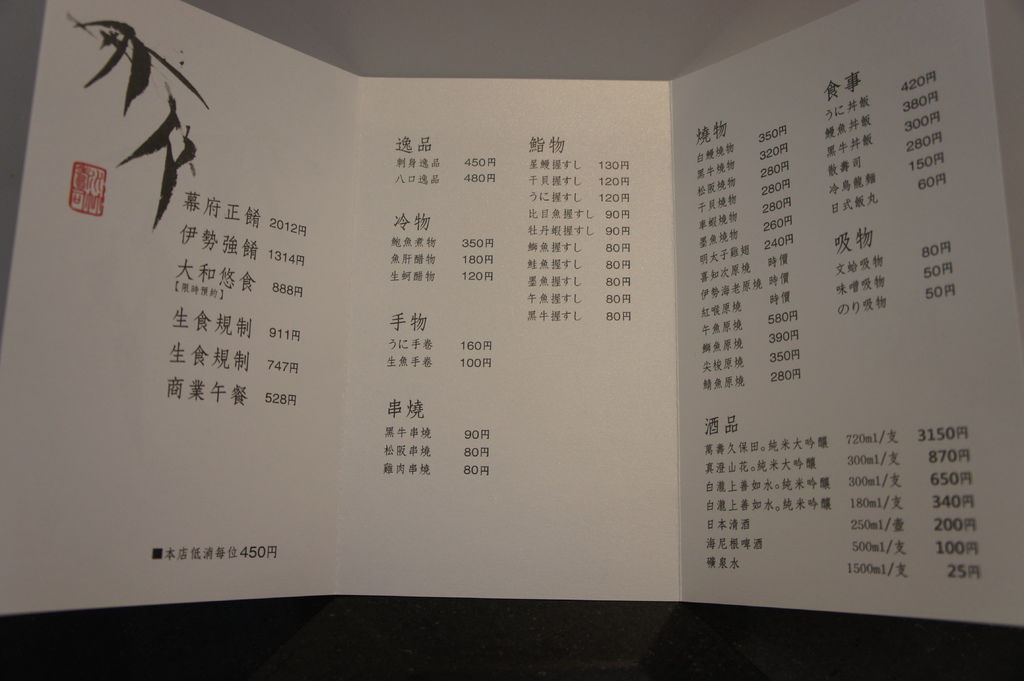 幕府正餚 2012円
伊勢強餚 1314円
大和悠食 888円
【限時預約】
生食規制 911円
生食規制 747円
商業午餐 528円
■本店低消每位450円
逸品
刺身逸品 450円
八口逸品 480円
冷物
鮑魚煮物 350円
魚肝醋物 180円
生蚵醋物 120円
手物
うに手卷 160円
生魚手卷 100円
串燒
黑牛串燒 90円
松阪串燒 80円
雞肉串燒 80円
鮨物
星鰻握すし 130円
干貝握すし 120円
うに握すし 120円
比目魚握すし 90円
牡丹蝦握すし 90円
鰤魚握すし 80円
鮭魚握すし 80円
墨魚握すし 80円
午魚握すし 80円
黑牛握すし 80円
燒物
白鰻燒物 350円
黑牛燒物 320円
松阪燒物 280円
干貝燒物 280円
車蝦燒物 280円
墨魚燒物 260円
明太子雞翅 240円
喜知次原燒 時價
伊勢海老原燒 時價
紅喉原燒 時價
午魚原燒 580円
鰤魚原燒 390円
尖梭原燒 350円
鯖魚原燒 280円
食事
うに丼飯 420円
鰻魚丼飯 380円
黑牛丼飯 300円
散壽司 280円
冷烏龍麵 150円
日式飯丸 60円
吸物
文蛤吸物 80円
味噌吸物 50円
のり吸物 50円
酒品
萬壽久保田。純米大吟釀 720ml/支 3150円
真澄山花。純米大吟釀 300ml/支 870円
白瀧上善如水。純米吟釀 300ml/支 650円
白瀧上善如水。純米吟釀 180ml/支 340円
日本清酒 250ml/壺 200円
海尼根啤酒 500ml/支 100円
礦泉水 1500ml/支 25円